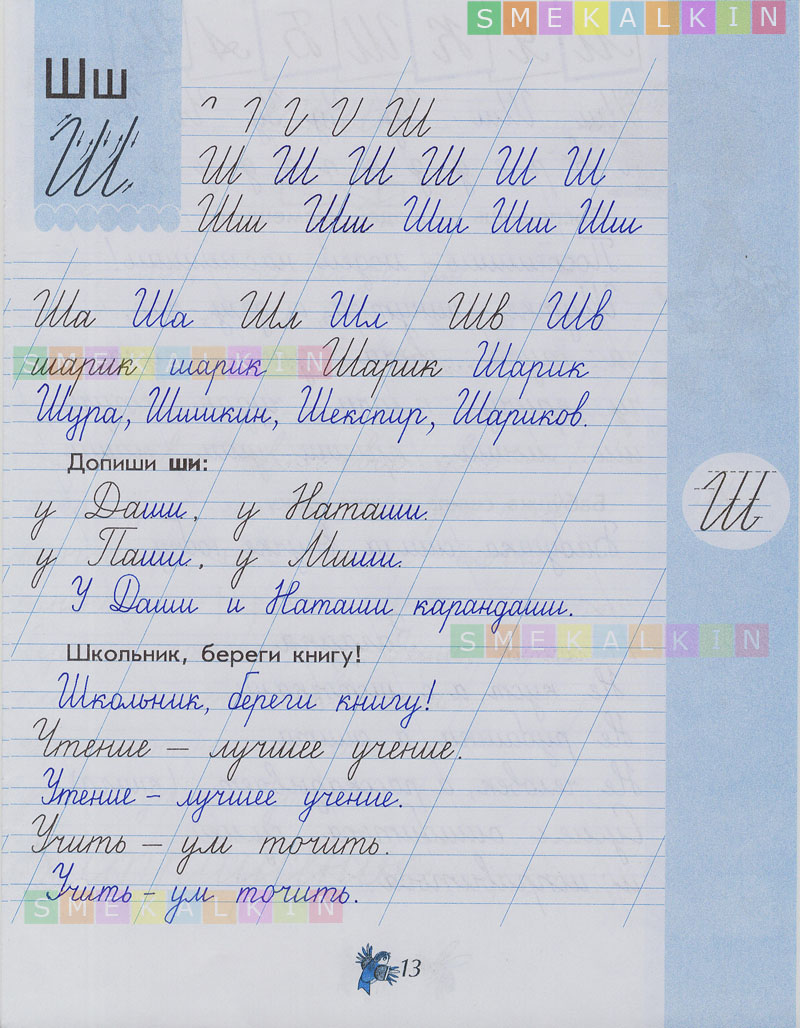 SMEKALKIN
Шш
Ш
Ш
Ш Ш Ш Ш Ш Ш
Шш Шш Шш Шш Шш
Ша Ша Шл Шл Шв Шв
SMEKALKIN
шарик шарик Шарик Шарик
Шура, Шишкин, Шекспир, Шариков.
Допиши ши:
у Даши, у Наташи.
у Паши, у Миши.
Ш
У Даши и Наташи карандаши.
SMEKALKIN
Школьник, береги книгу!
Школьник, береги книгу!
Чтение — лучшее учение.
Чтение – лучшее учение.
Учить — ум точить.
Учить – ум точить.
SMEKALKIN
13